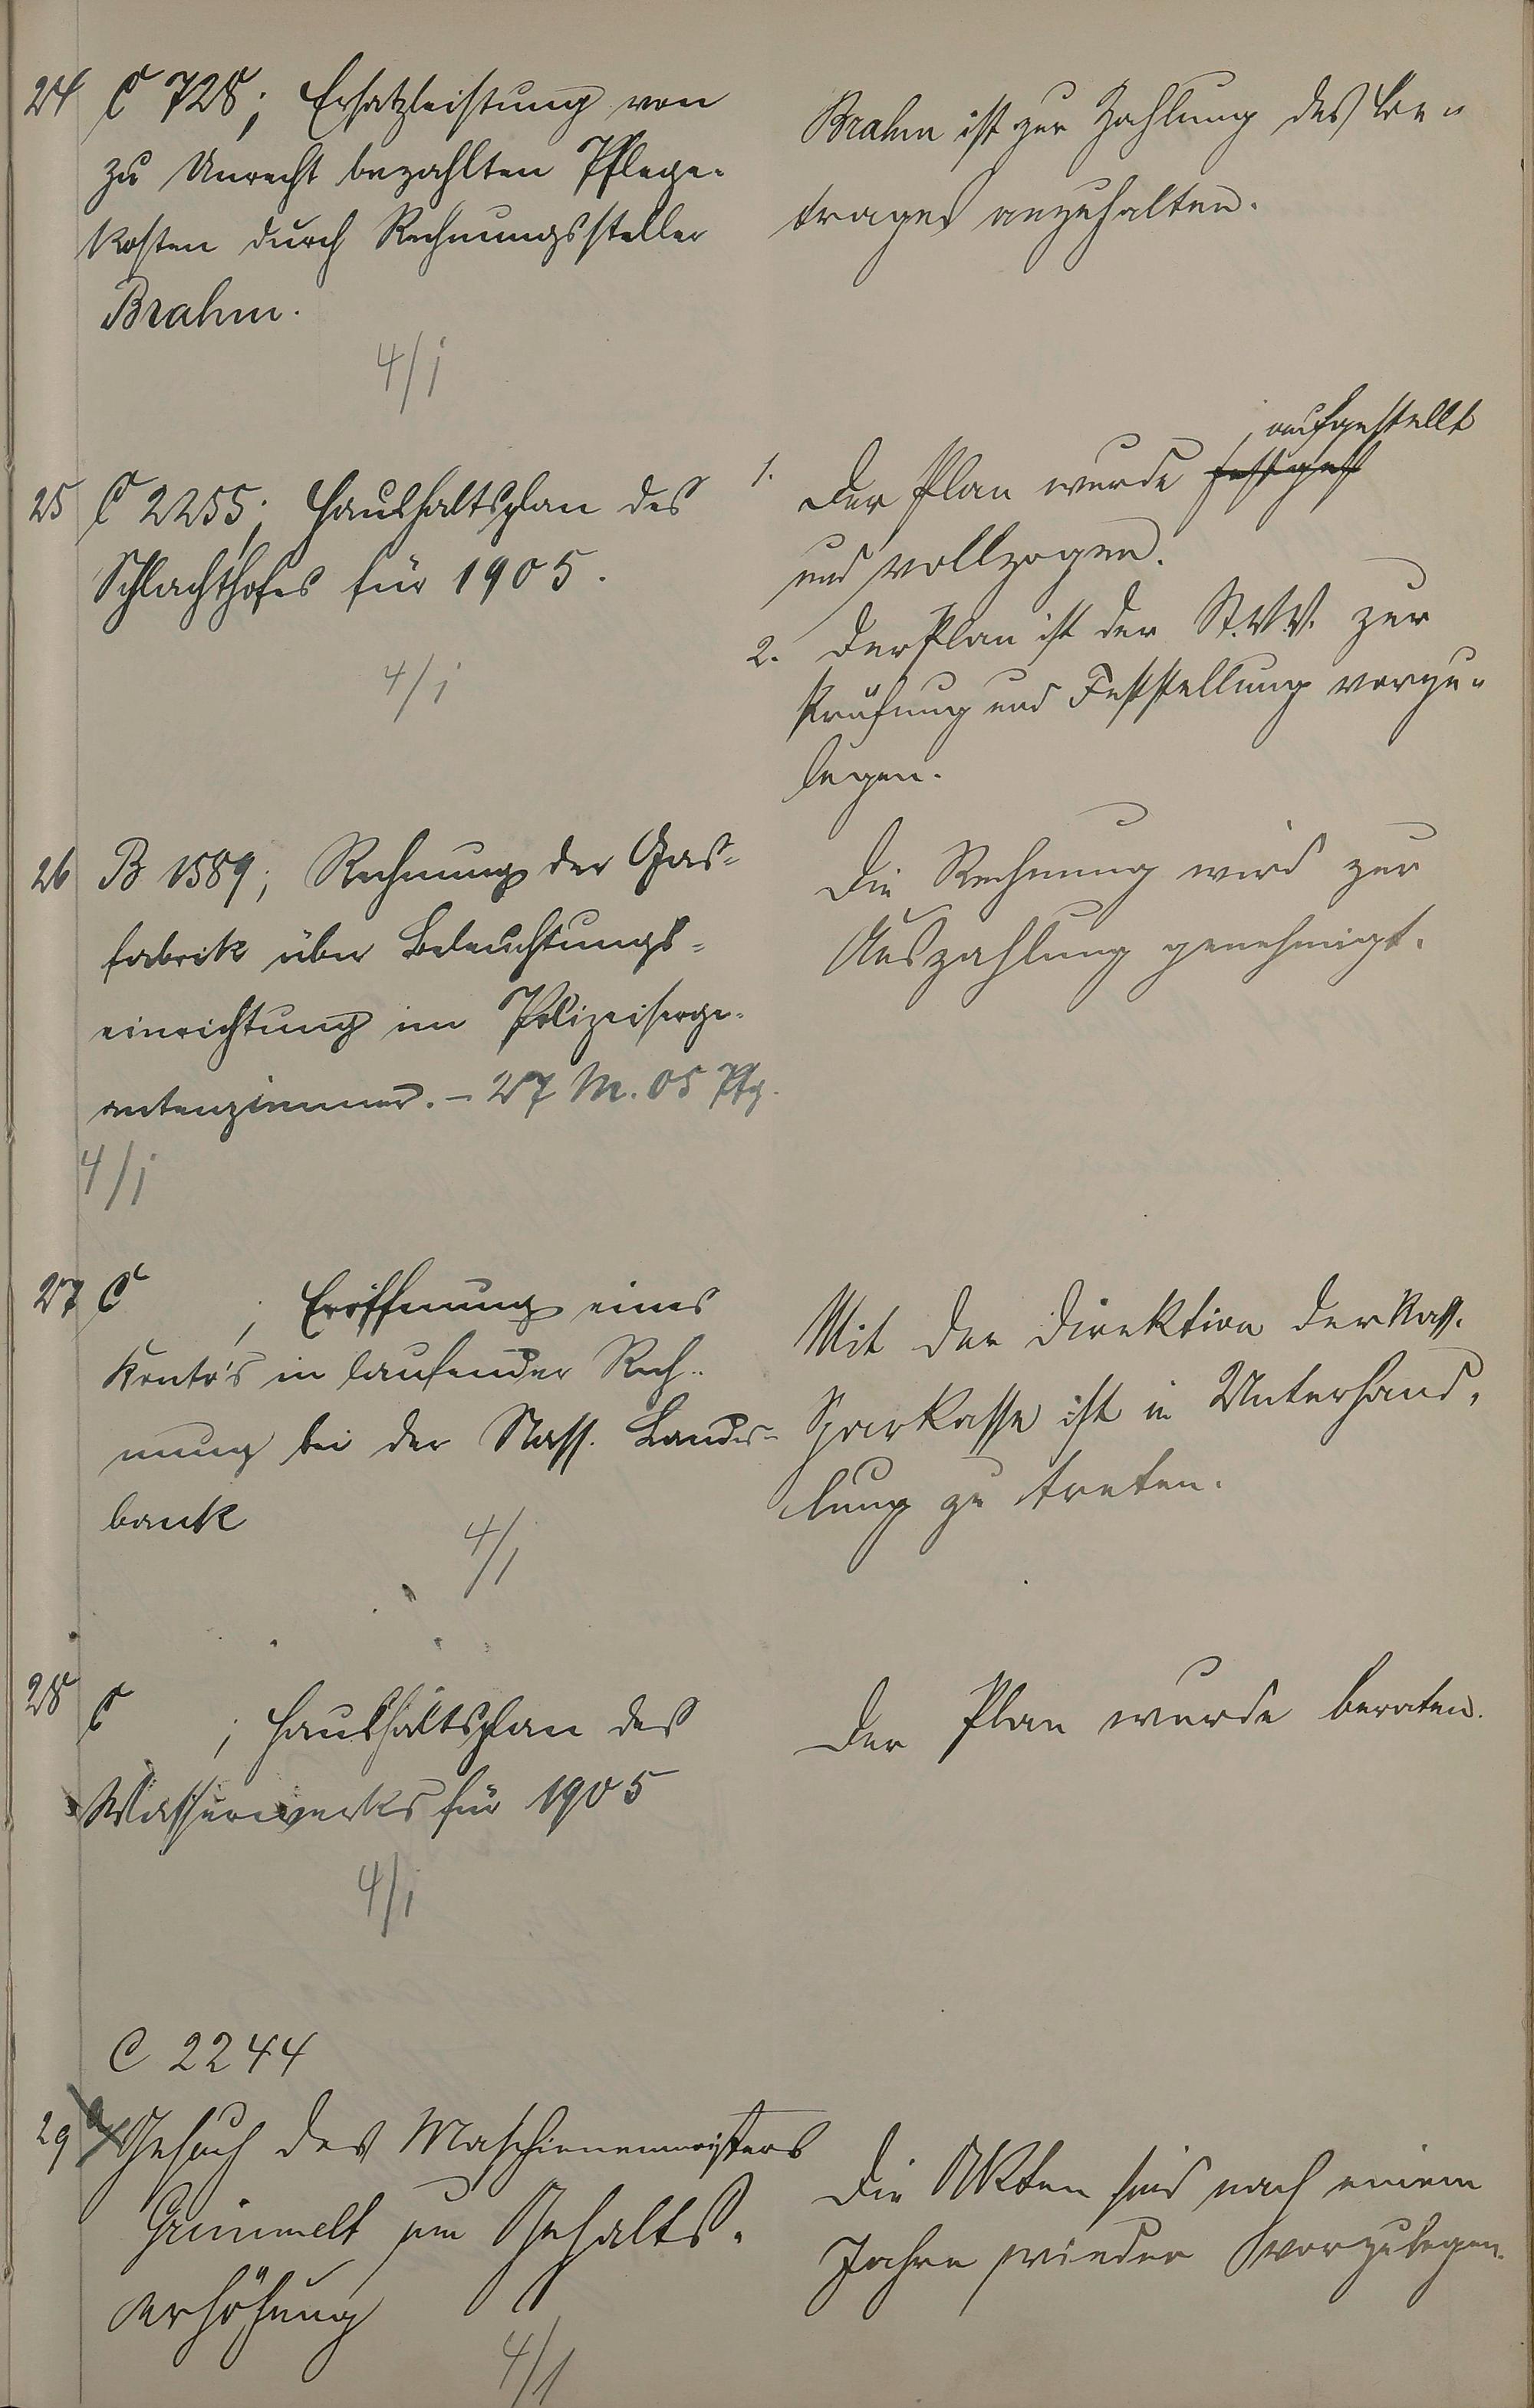 24 C 728; Ersatzleistung von
zu Unrecht bezahlten Pflege-
kosten durch Rechnungssteller
Brahm.
4/1
Brahm ist zur Zahlung des Be-
trages anzuhalten.
25 C 2255; Haushaltsplan des
Schlachthofes für 1905.
4/1
aufgestellt
1. Der Plan wurde festgest
und vollzogen.
2. Der Plan ist der St.V.V. zur
Prüfung und Feststellung vorzu-
legen.
26 B 1589; Rechnung der Gas-
fabrik über Beleuchtungs-
einrichtung im Polizeiserge-
antenzimmer. – 27 M. 05 Pfg.
4/1
Die Rechnung wird zur
Auszahlung genehmigt.
27 C ; Eröffnung eines
Konto's in laufender Rech-
nung bei der Nass. Landes-
bank
4/1
Mit der Direktion der Nass.
Sparkasse ist in Unterhand-
lung zu treten.
28 C ; Haushaltsplan des
Wasserwerks für 1905
4/1
Der Plan wurde beraten.
C 2244
29 Gesuch des Maschienenmeisters
Grimmelt um Gehalts-
erhöhung
4/1
Die Akten sind nach einem
Jahre wieder vorzulegen.